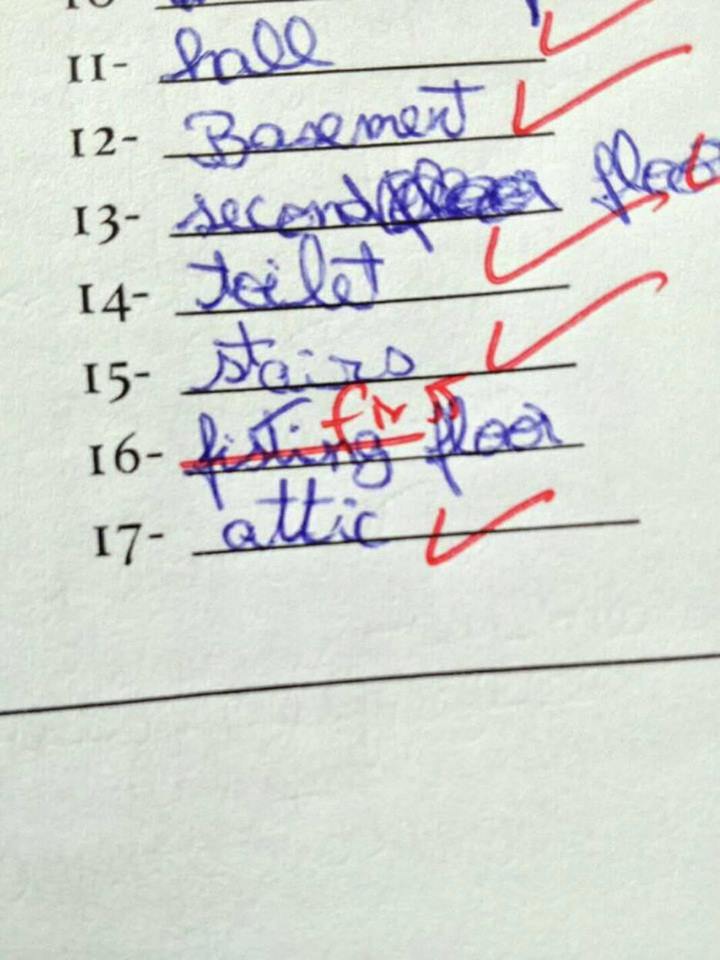 11- hall
12- Basement
13- second floor
14- toilet
15- stairs
16- fisting floor
17- attic